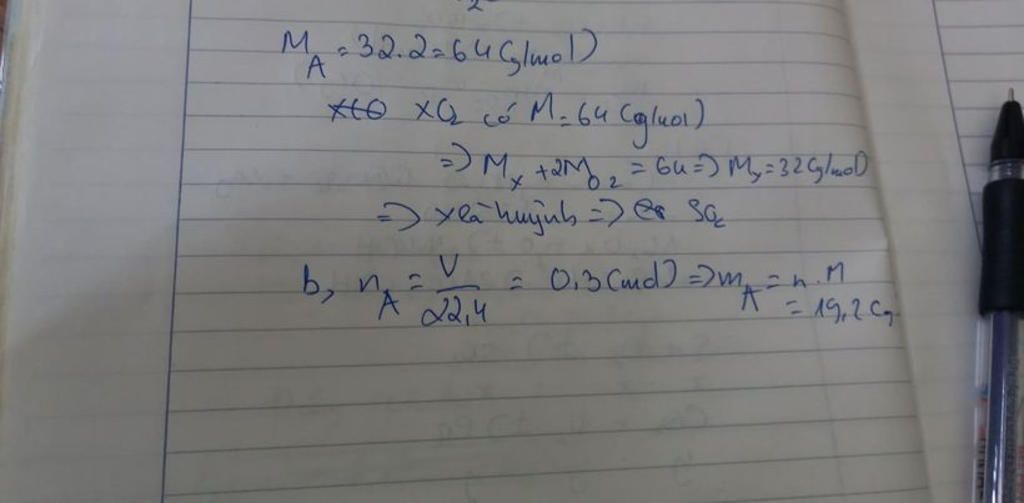 2
M_A = 32.2 = 64 (g/mol)
XO2 có M = 64 (g/mol)
=> M_X + 2M_O2 = 64 => M_X = 32 (g/mol)
=> X là huỳnh => SO2
b, n_A = V/22,4 = 0.3 (mol) => m_A = n.M
= 19,2 (g